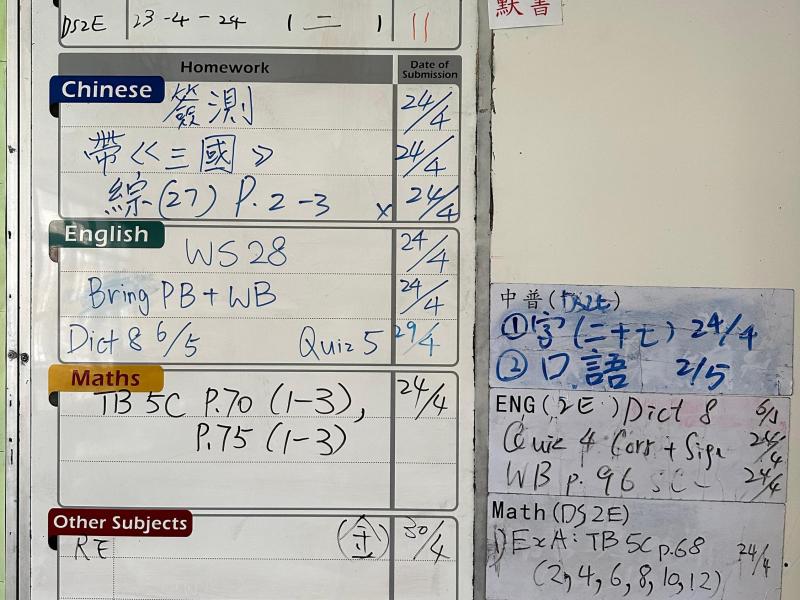 DS2E 23-4-24 (二) 11
Homework Date of Submission
Chinese
簽測 24/4
帶《三國》 24/4
綜(27) P.2-3 x 24/4
English
WS 28 24/4
Bring PB + WB 24/4
Dict 8 6/5 Quiz 5 29/4
Maths
TB 5C P.70 (1-3), 24/4
P.75 (1-3)
Other Subjects
RE (金) 30/4
默書
中普(DS2E)
①字(二十七) 24/4
②口語 2/5
ENG(2E) Dict 8 6/5
Quiz 4 Corr + Sign 24/4
WB p.96 24/4
Math(DS2E)
1) Ex A: TB 5C p.68 24/4
(2,4,6,8,10,12)